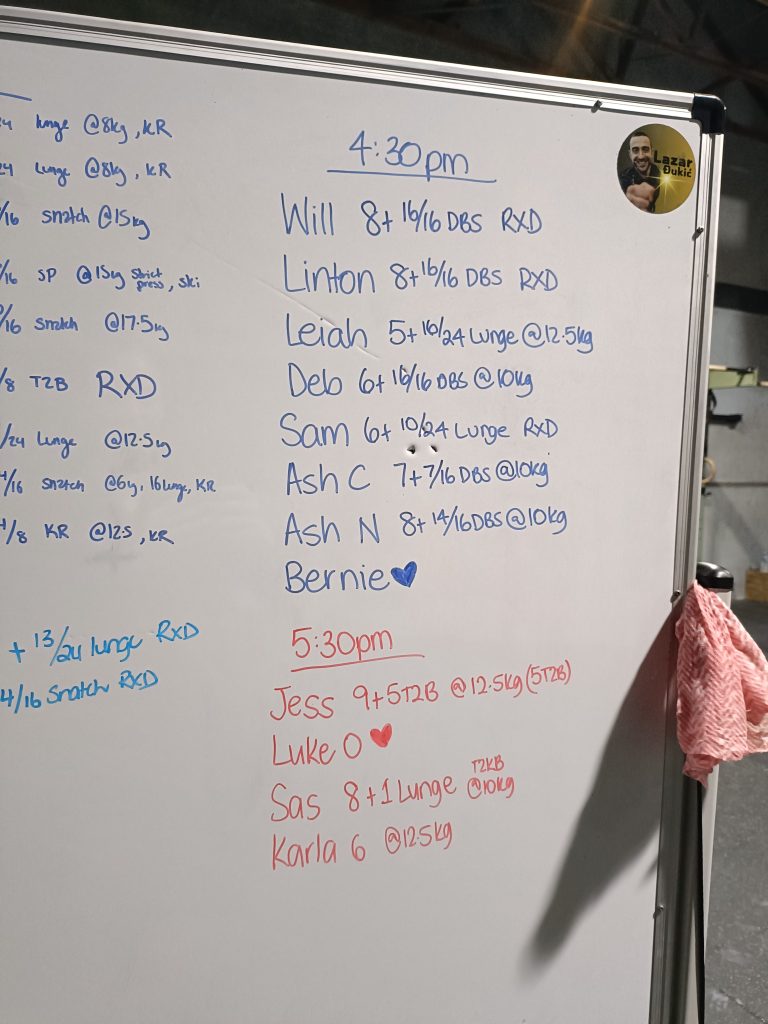 24 lunge @8kg, KR
24 Lunge @8kg, KR
/16 snatch @15kg
/16 SP @15kg Strict press, ski
/16 snatch @17.5kg
/8 T2B RXD
/24 Lunge @12.5kg
4/16 snatch @6kg, 16 lunge, KR
/8 KR @12.5, KR
+ 13/24 lunge RXD
4/16 Snatch RXD
4:30pm
Will 8+16/16 DBS RXD
Linton 8+16/16 DBS RXD
Leiah 5+16/24 Lunge @12.5kg
Deb 6+16/16 DBS @10kg
Sam 6+10/24 Lunge RXD
Ash C 7+7/16 DBS @10kg
Ash N 8+14/16 DBS @10kg
Bernie
5:30pm
Jess 9+5T2B @12.5kg (5T2B)
Luke O
Sas 8+1 Lunge T2KB @10kg
Karla 6 @12.5kg
Lazar
Đukić